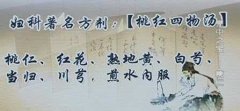 妇科著名方剂：【桃红四物汤】
桃仁、红花、熟地黄、白芍、
当归、川芎，煎水内服